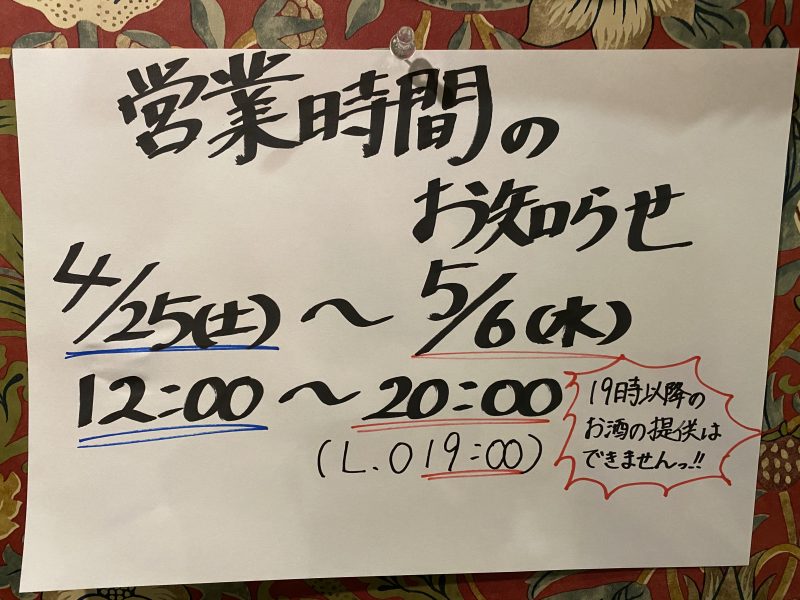 営業時間の
お知らせ
4/25(土)〜5/6(水)
12:00〜20:00
(L.O 19:00)
19時以降の
お酒の提供は
できませんっ!!